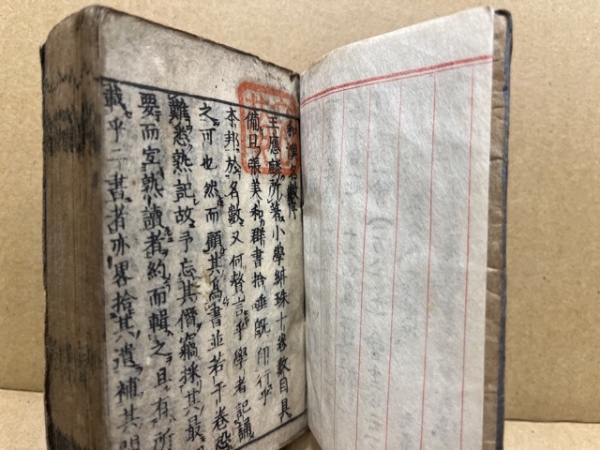 和漢名數序
王應麟所著小學紺珠十卷數目具
備且張美和群書拾唾既印行乎
本邦於名數又何贅言乎學者記誦
之可也然而顧其爲書並若干卷恐
難悉熟記故予忘其僭竊採其最
要而宜熟讀者約而輯之且有所
載乎二書者亦畧拾其遺補其